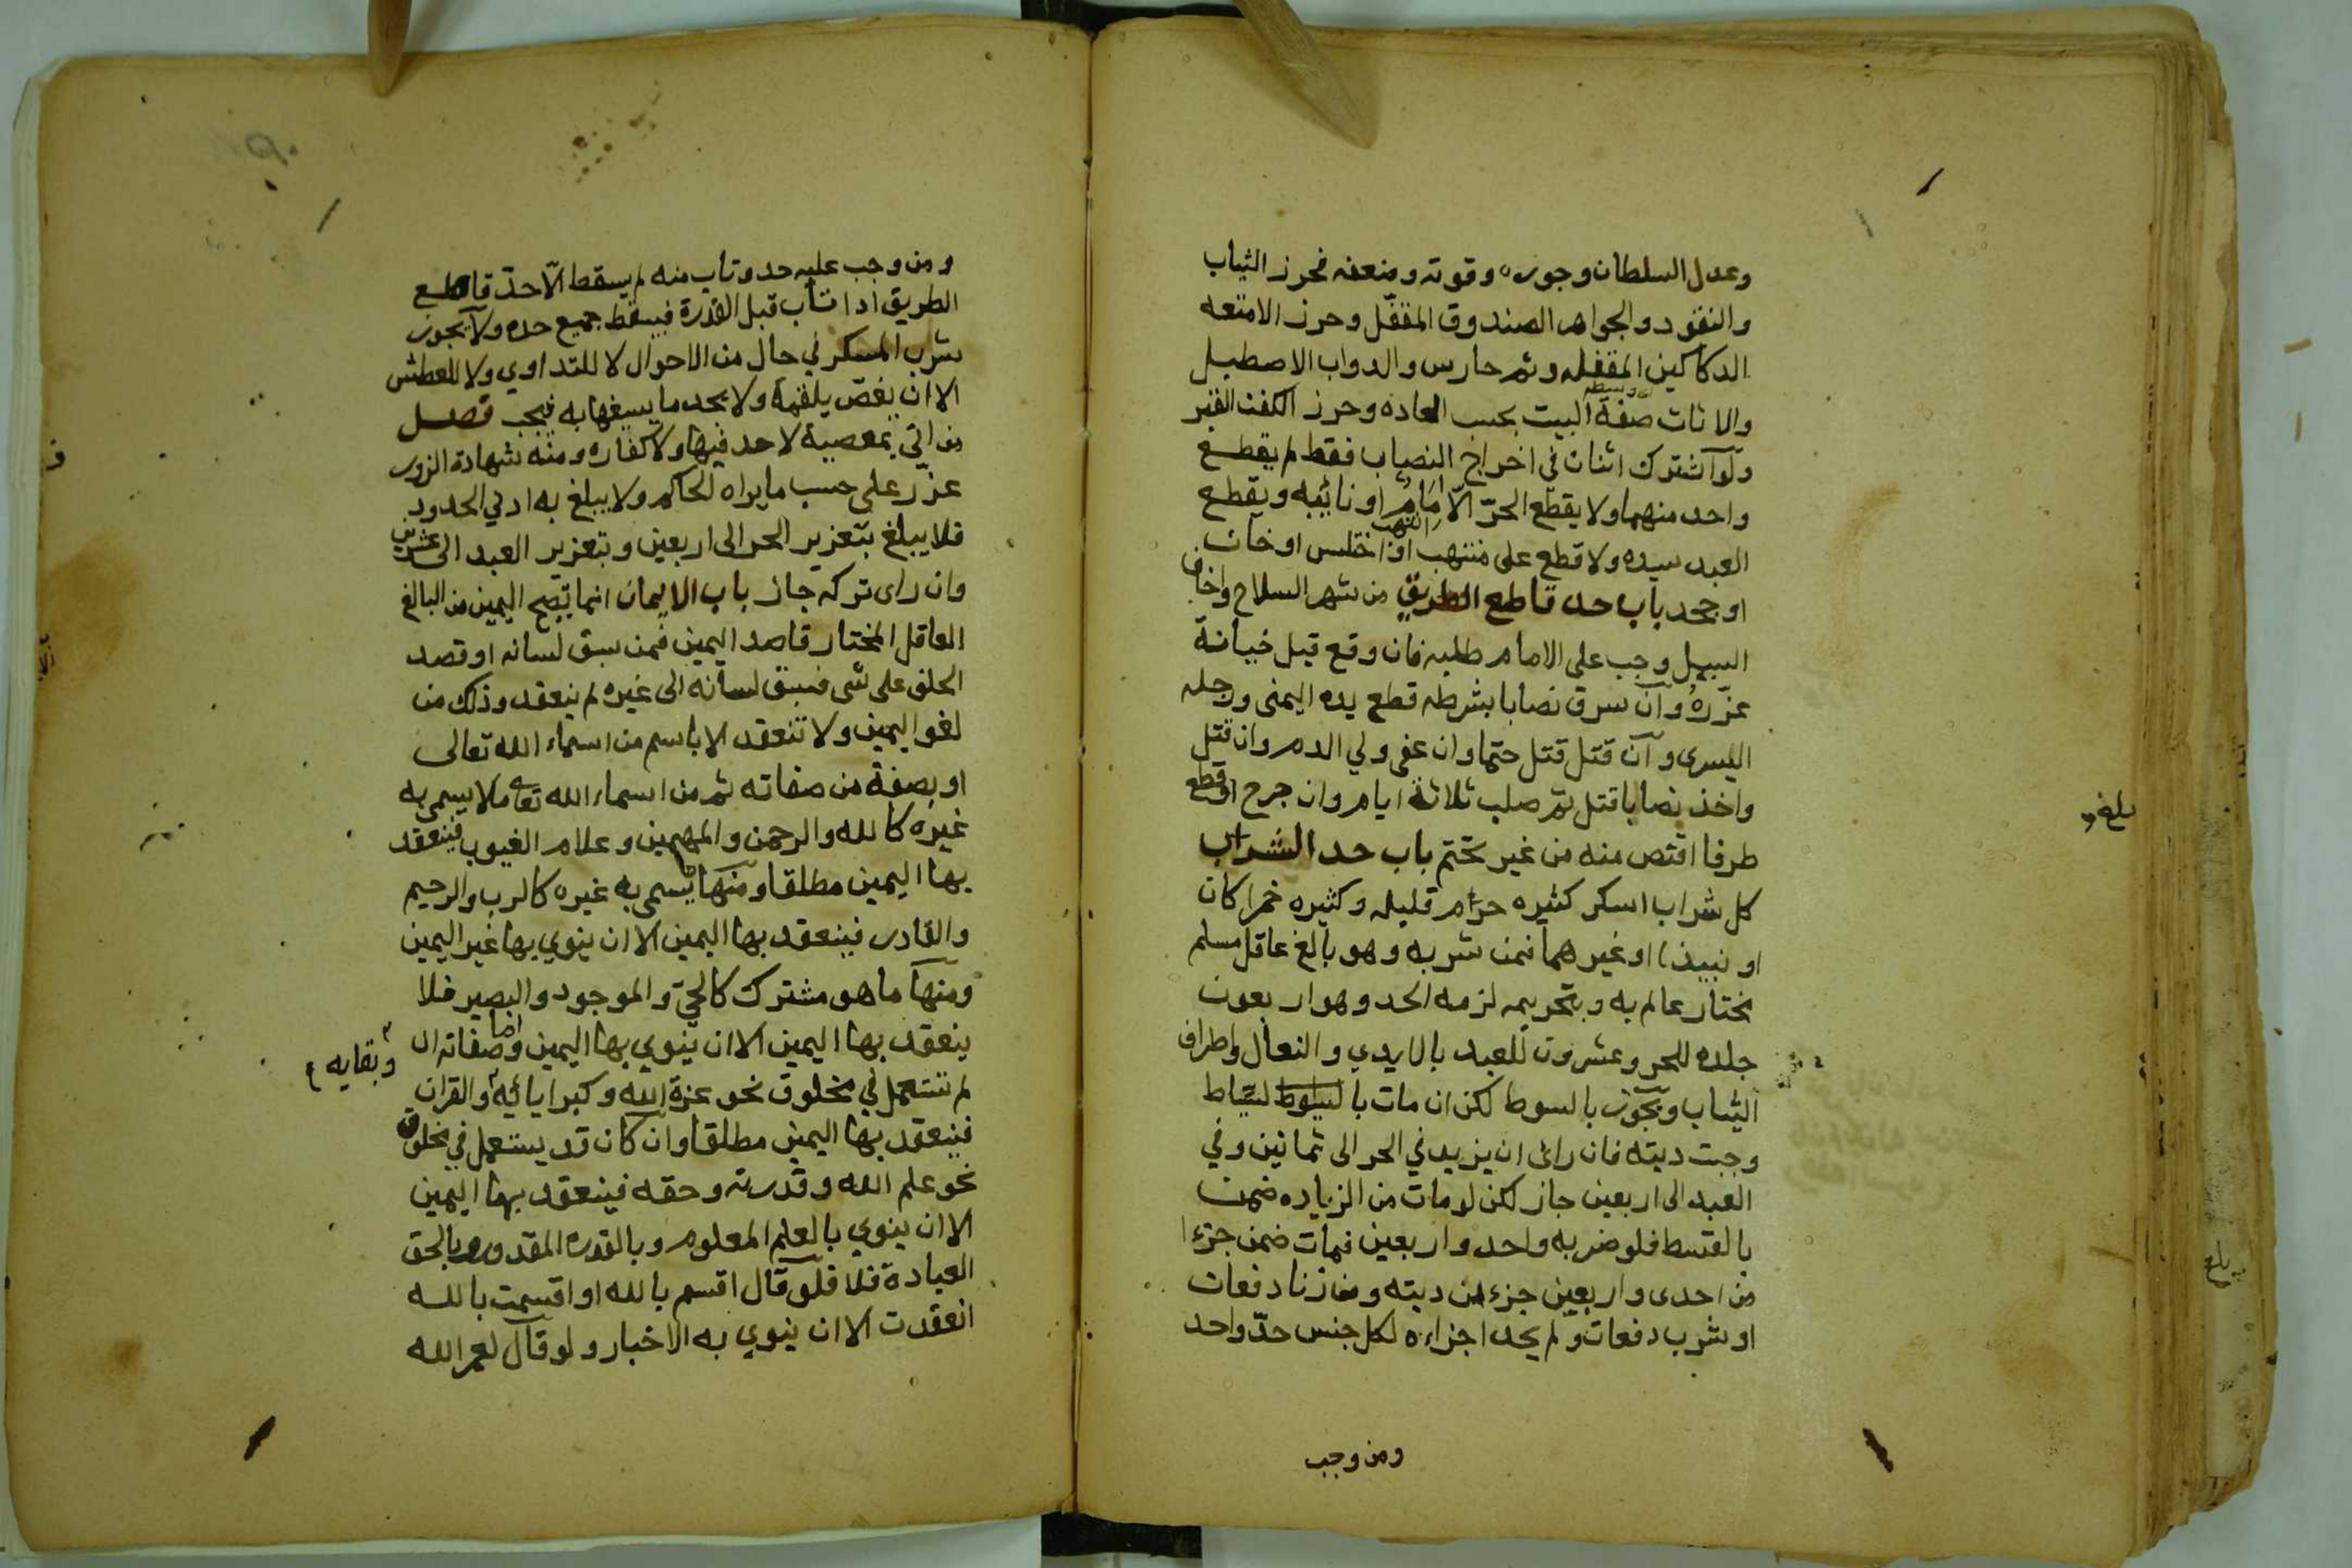 وعدل السلطان وجوره وقوته ومنعته فحرز الثياب
والنقود والجواهر الصندوق المقفّل وحرز الامتعه
الدكاكين المقفله وثم حارس والدواب الاصطبل
والاثاث صفة البيت بحسب العاده وحرز الكفن القبر
ولو اشترك اثنان في اخراج النصاب فقط لم يقطع
واحد منهما ولا يقطع الحرّ الّا امامٌ او نائبه ويقطع
العبد سيده ولا قطع على من انتهب او اختلس او خان
او جحد باب حد قاطع الطريق من شهر السلاح واخاف
السبيل وجب على الامام طلبه فان وقع قبل خيانة
عزّره وان سرق نصابا بشرطه قطع يده اليمنى ورجله
اليسرى وان قتل قتل حتما وان عفى ولي الدم وان قتل
واخذ نصابا قتل ثم صلب ثلاثة ايام وان جرح او قطع
طرفا اقتص منه من غير تحتم باب حد الشراب
كل شراب اسكر كثيره حرام قليله وكثيره خمرا كان
او نبيذا او غيرهما فمن شربه وهو بالغ عاقل مسلم
مختار عالم به وبتحريمه لزمه الحد وهو اربعون
جلده للحر وعشرون للعبد بالايدي والنعال واطراف
الثياب ويجوز بالسوط لكن ان مات بالسياط
وجبت ديته فان رائ ان يزيد في الحر الى ثمانين وفي
العبد الى اربعين جاز لكن لو مات من الزياده ضمن
بالقسط فلو ضربه واحد واربعين فمات ضمن جزءا
من احدى واربعين جزء من ديته ومن زنا دفعات
او شرب دفعات ولم يحد اجزاءه لكل جنس حدّ واحد
ومن وجب
بلغ
ومن وجب عليه حد وتاب منه لم يسقط الّا حدّ قاطع
الطريق اذا تاب قبل القدرة فيسقط جميع حده ولا يجوز
شرب المسكر في حال من الاحوال لا للتداوي ولا للعطش
الا ان يغصّ بلقمة ولا يجد ما يسيغها به فيجب فصل
من اتى بمعصية لا حد فيها ولا كفاره ومنه شهادة الزور
عزّر على حسب ما يراه الحاكم ولا يبلغ به ادنى الحدود
فلا يبلغ بتعزير الحر الى اربعين وبتعزير العبد الى عشرين
وان راى تركه جاز باب الايمان انما تصح اليمين من البالغ
العاقل المختار قاصد اليمين فمن سبق لسانه او قصد
الحلف على شى فسبق لسانه الى غيره لم ينعقد وذلك من
لغو اليمين ولا تنعقد الا باسم من اسماء الله تعالى
او بصفة من صفاته ثم من اسماء الله تعا ما لا يسمى به
غيره كالله والرحمن والمهيمن وعلام الغيوب فينعقد
بها اليمين مطلقا ومنها ما يسمى به غيره كالرب والرحيم
والقادر فينعقد بها اليمين الا ان ينوي بها غير اليمين
ومنها ما هو مشترك كالحيّ والموجود والبصير فلا
ينعقد بها اليمين الا ان ينوي بها اليمين واما صفاته ان
لم تستعمل في مخلوق نحو عزة الله وكبرايائيه والقران
وبقايه
فينعقد بها اليمين مطلقا وان كان قد يستعمل في مخلوق
نحو علم الله وقدرته وحقه فينعقد بها اليمين
الا ان ينوي بالعلم المعلوم وبالقدره المقدور وبالحق
العبادة فلا فلو قال اقسم بالله او اقسمت بالله
انعقدت الا ان ينوي به الاخبار ولو قال لعمر الله